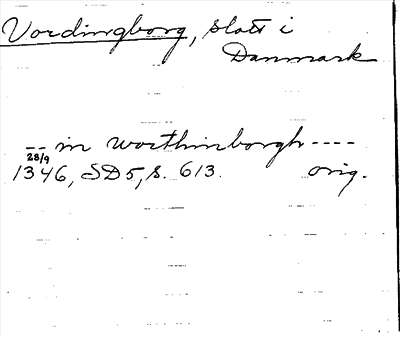 Vordingborg, slott i
Danmark
-- in worthinborgh ----
28/9
1346, SD5, s. 613. orig.